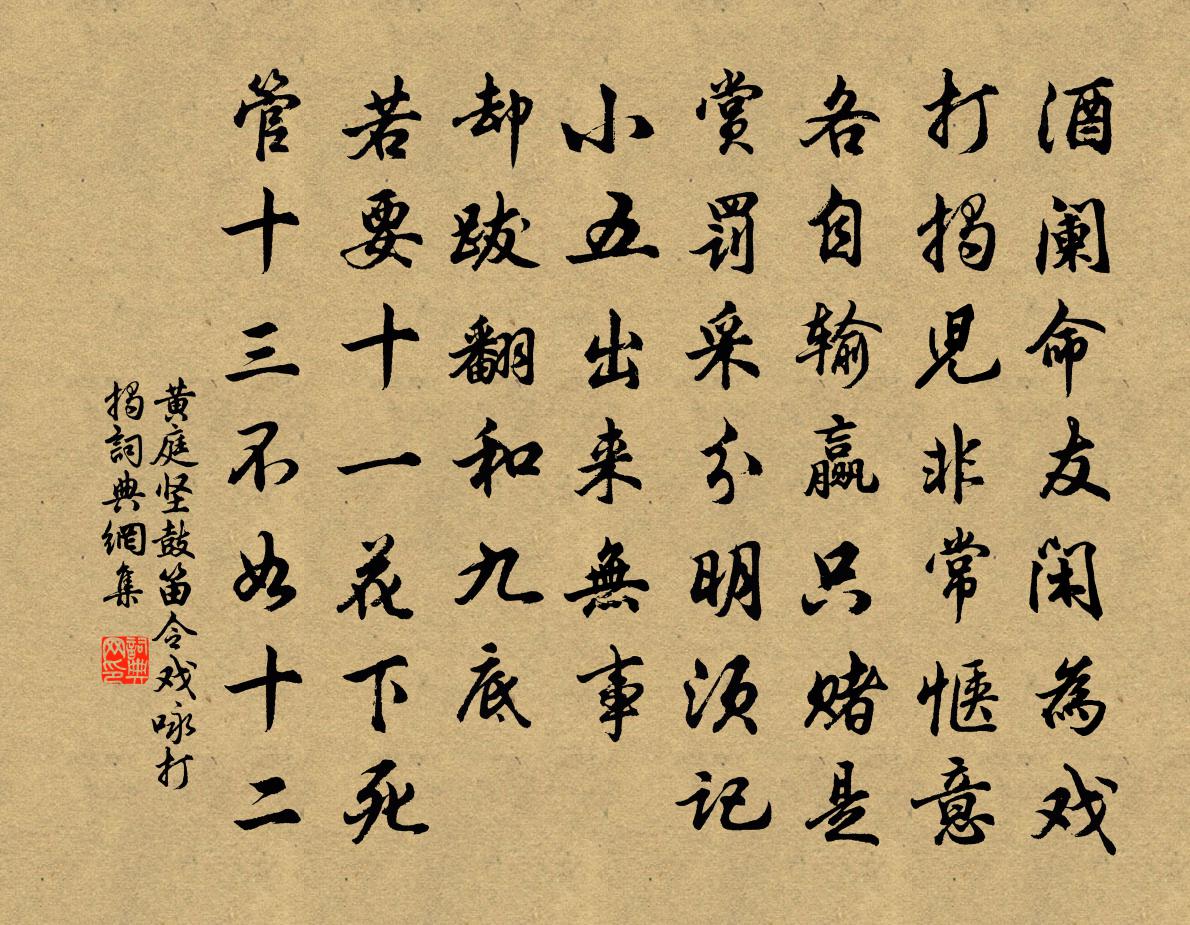 酒阑命友闲為戏
打揭児非常惬意
各自输赢只赌是
赏罚采分明须记
小五出来無事
却跋翻和九底
若要十一花下死
管十三不如十二
黄庭坚鼓笛令戏咏打
揭詞典網集
詞典网印